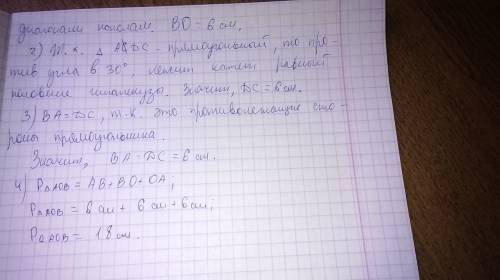 диагонали пополам. BO = 6 см.
2) Т.к. △ ADC - прямоугольный, то про-
тив угла в 30°, лежит катет равный
половине гипотенузы. Значит, DC = 6 см.
3) BA = DC, т.к. это противолежащие сто-
роны прямоугольника.
Значит, BA = DC = 6 см.
4) P△AOB = AB + BO + OA;
P△AOB = 6 см + 6 см + 6 см;
P△AOB = 18 см.